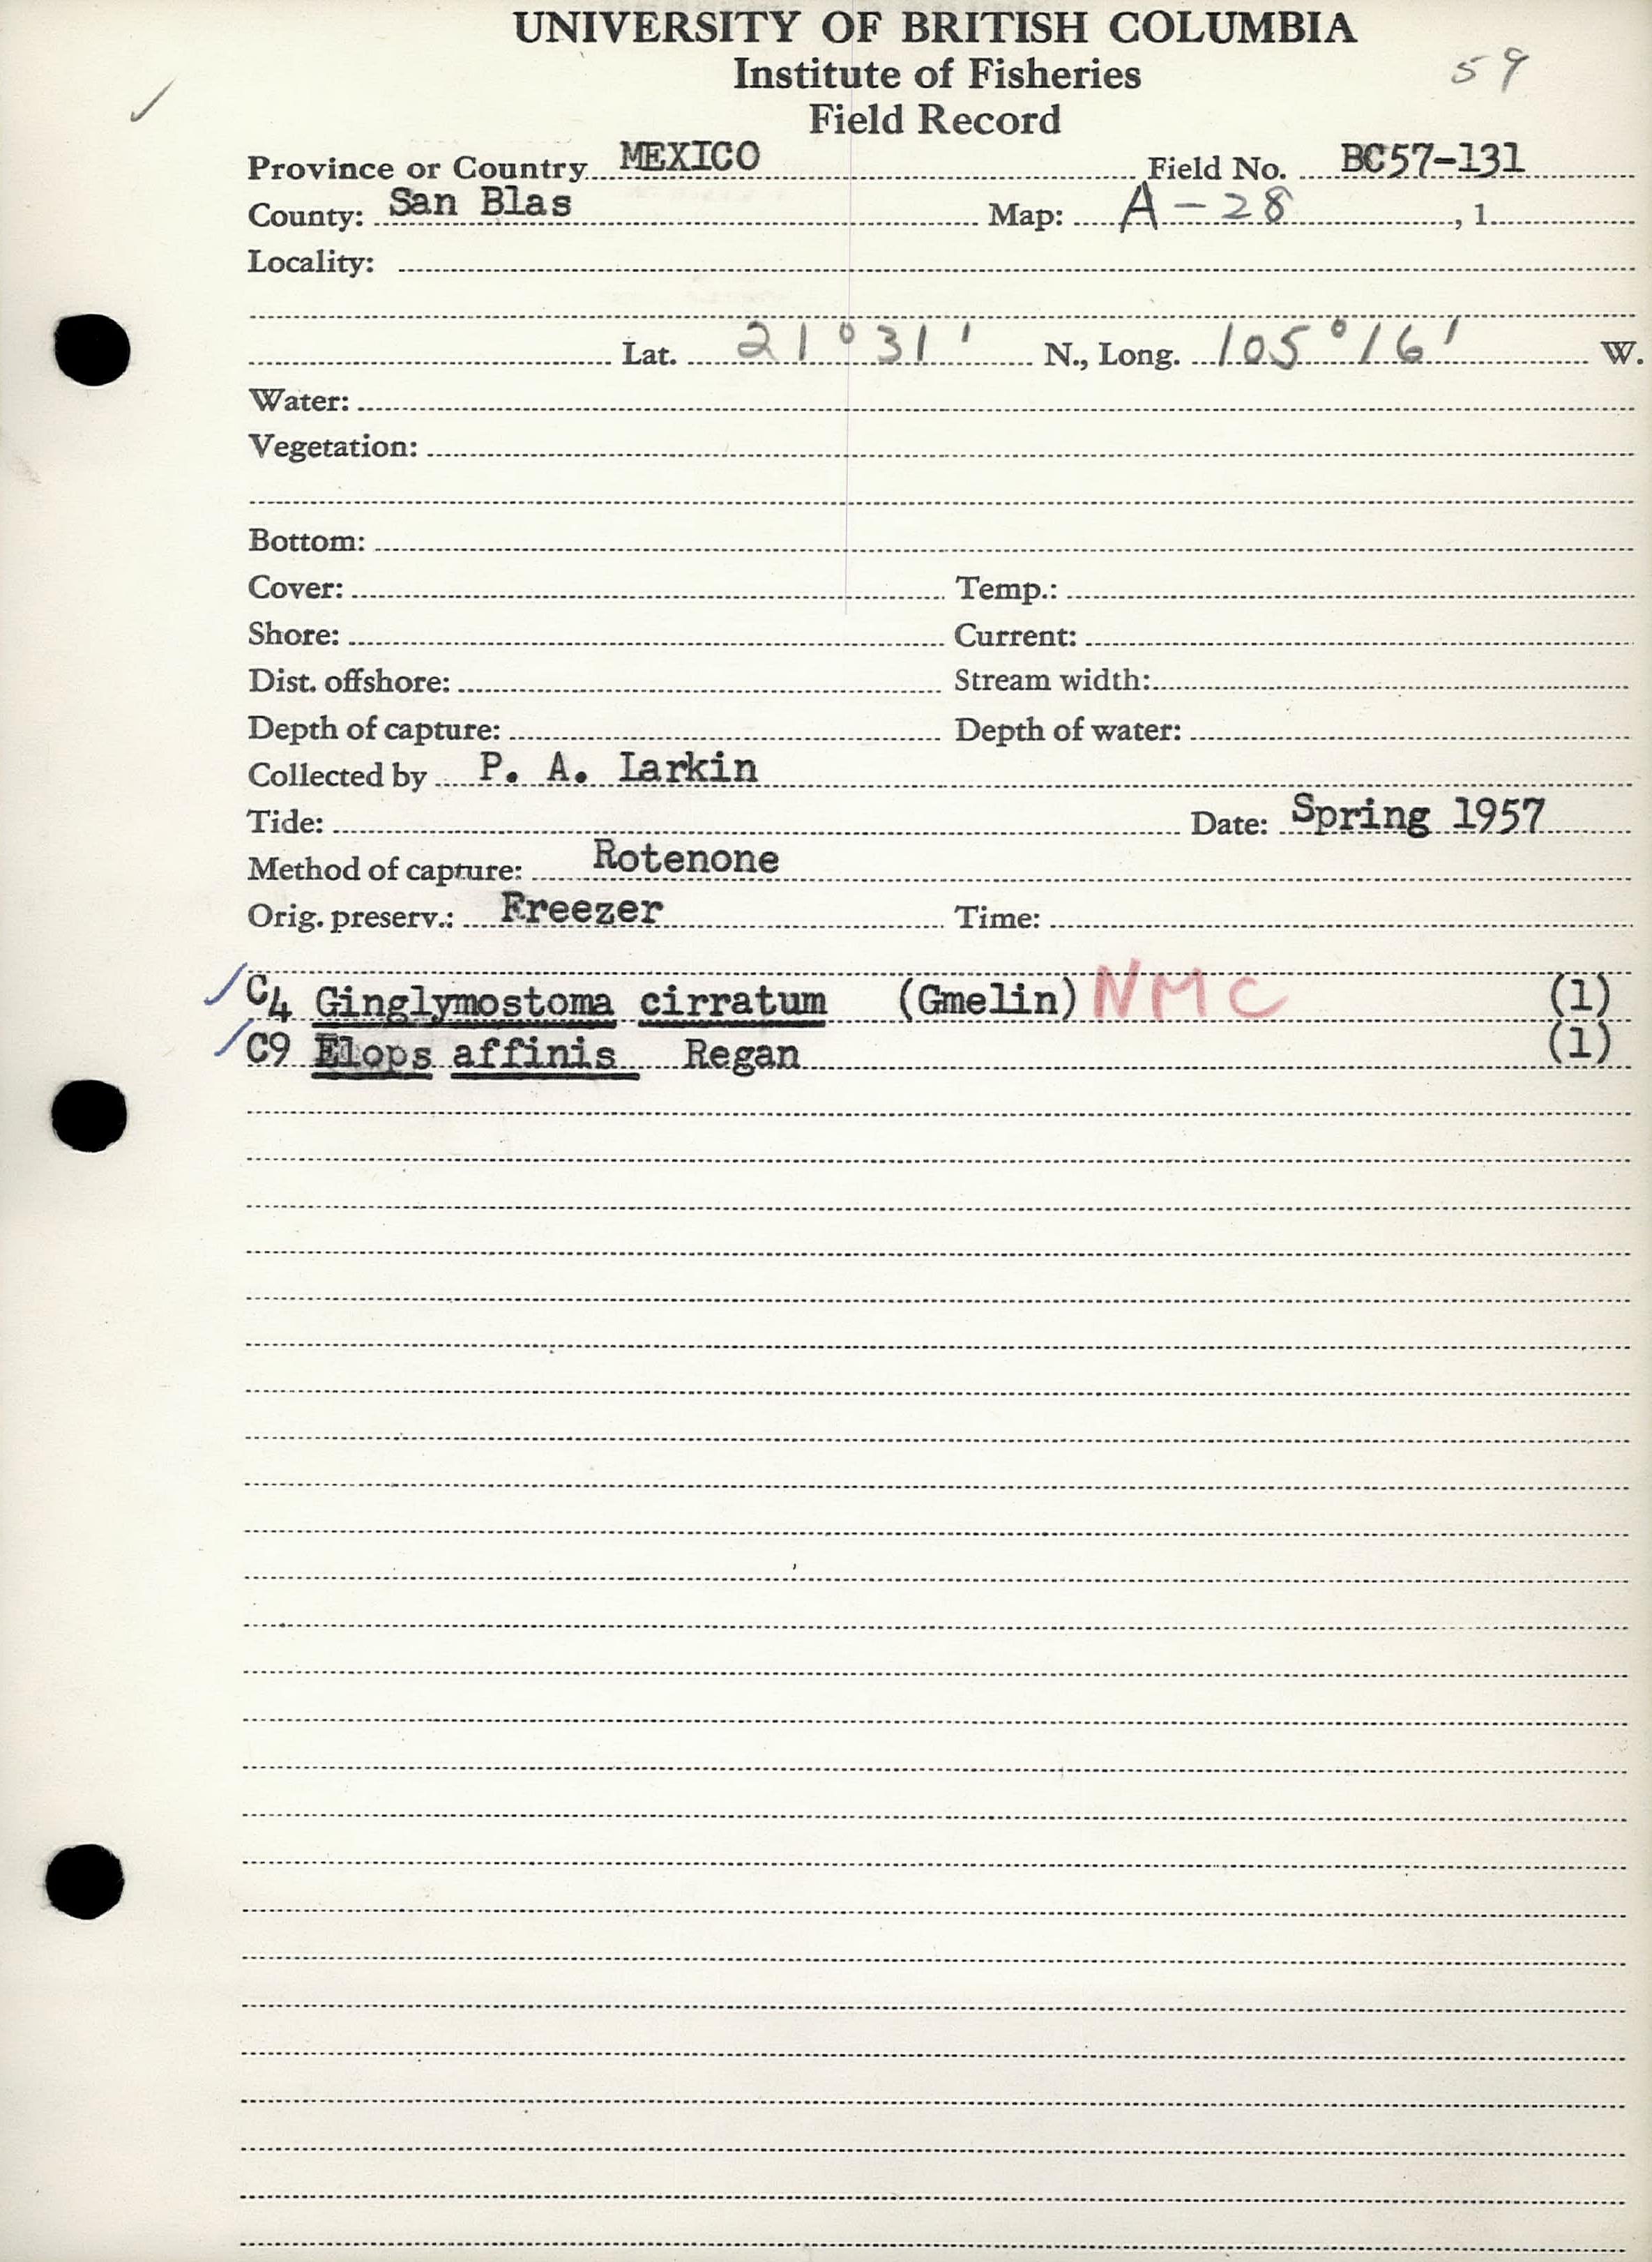 UNIVERSITY OF BRITISH COLUMBIA
Institute of Fisheries
59
Field Record
Province or Country MEXICO Field No. BC57-131
County: San Blas Map: A-28, 1
Locality:
Lat. 21°31' N., Long. 105°16' W.
Water:
Vegetation:
Bottom:
Cover: Temp.:
Shore: Current:
Dist. offshore: Stream width:
Depth of capture: Depth of water:
Collected by P. A. Larkin
Tide: Date: Spring 1957
Method of capture: Rotenone
Orig. preserv.: Freezer Time:
C4 Ginglymostoma cirratum (Gmelin) NMC (1)
C9 Elops affinis Regan (1)